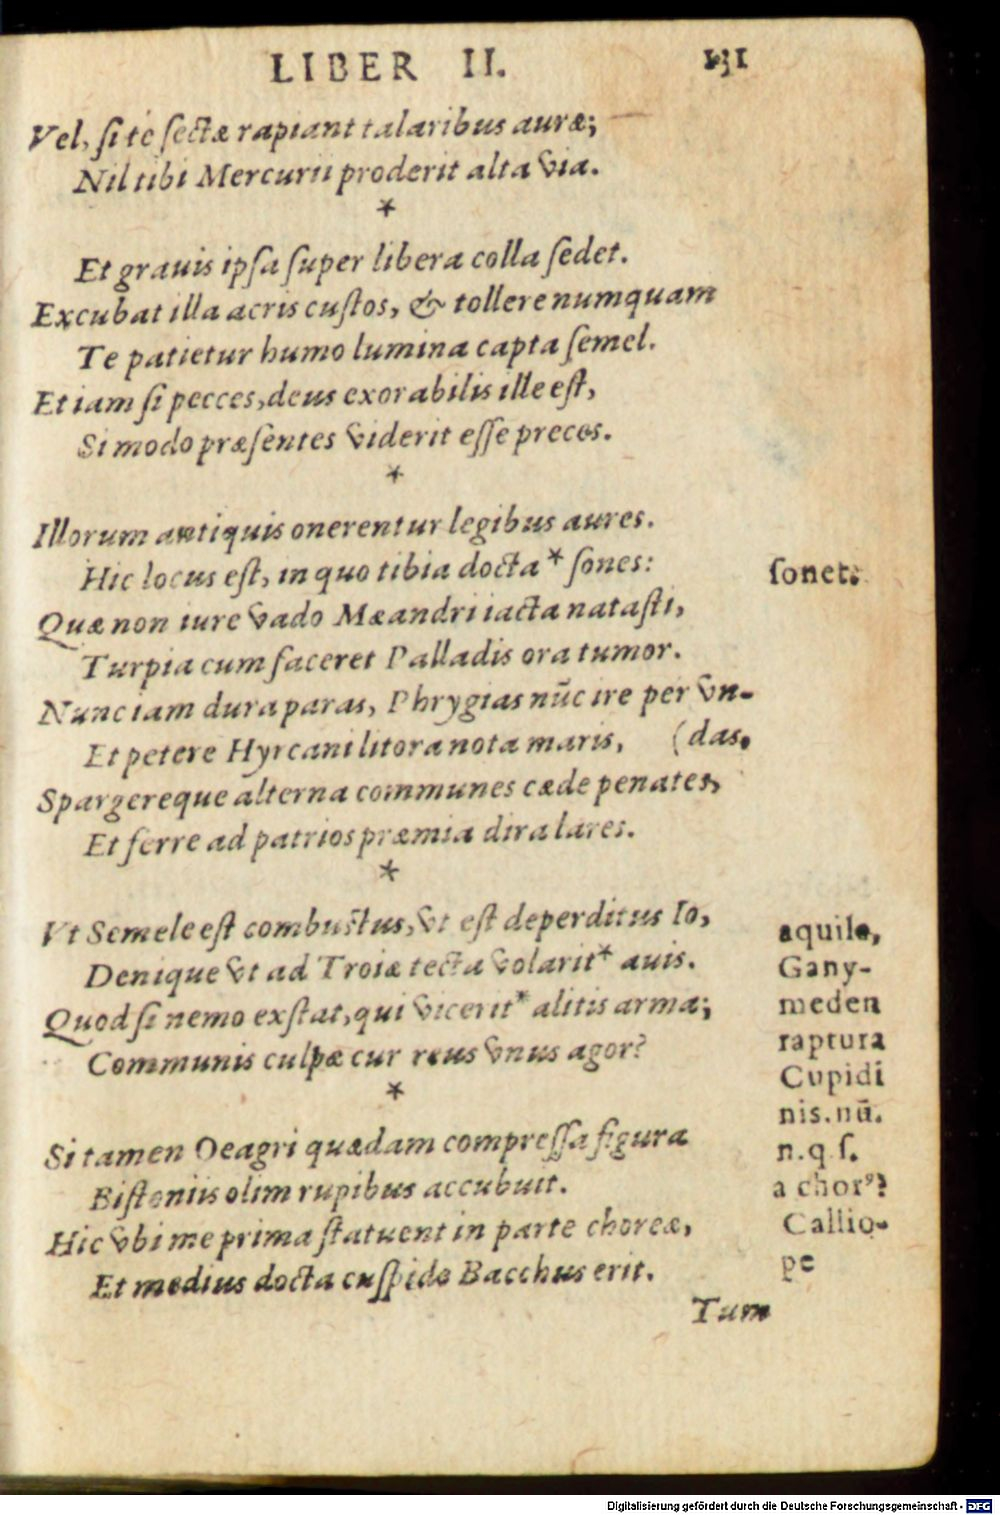 LIBER II. 131
Vel, si te sectæ rapiant talaribus auræ;
Nil tibi Mercurii proderit alta via.
*
Et grauis ipsa super libera colla sedet.
Excubat illa acris custos, & tollere numquam
Te patietur humo lumina capta semel.
Et iam si pecces, deus exorabilis ille est,
Si modo præsentes viderit esse preces.
*
Illorum antiquis onerentur legibus aures.
Hic locus est, in quo tibia docta * sones: sonet.
Quæ non iure vado Mæandri iacta natasti,
Turpia cum faceret Palladis ora tumor.
Nunc iam dura paras, Phrygias nūc ire per vn-
Et petere Hyrcani litora nota maris, (das,
Spargereque alterna communes cæde penates,
Et ferre ad patrios præmia dira lares.
*
Vt Semele est combustus, vt est deperditus Io, aquile,
Denique vt ad Troiæ tecta volarit * auis. Gany-
Quod si nemo exstat, qui vicerit * alitis arma; meden
Communis culpæ cur reus vnus agor? raptura
* Cupidi
nis. nū.
Si tamen Oeagri quædam compressa figura n.q s.
Bistoniis olim rupibus accubuit. a chor⁹?
Hic vbi me prima statuent in parte choreæ, Callio-
Et medius docta cuspide Bacchus erit. pe
Tum
Digitalisierung gefördert durch die Deutsche Forschungsgemeinschaft - DFG